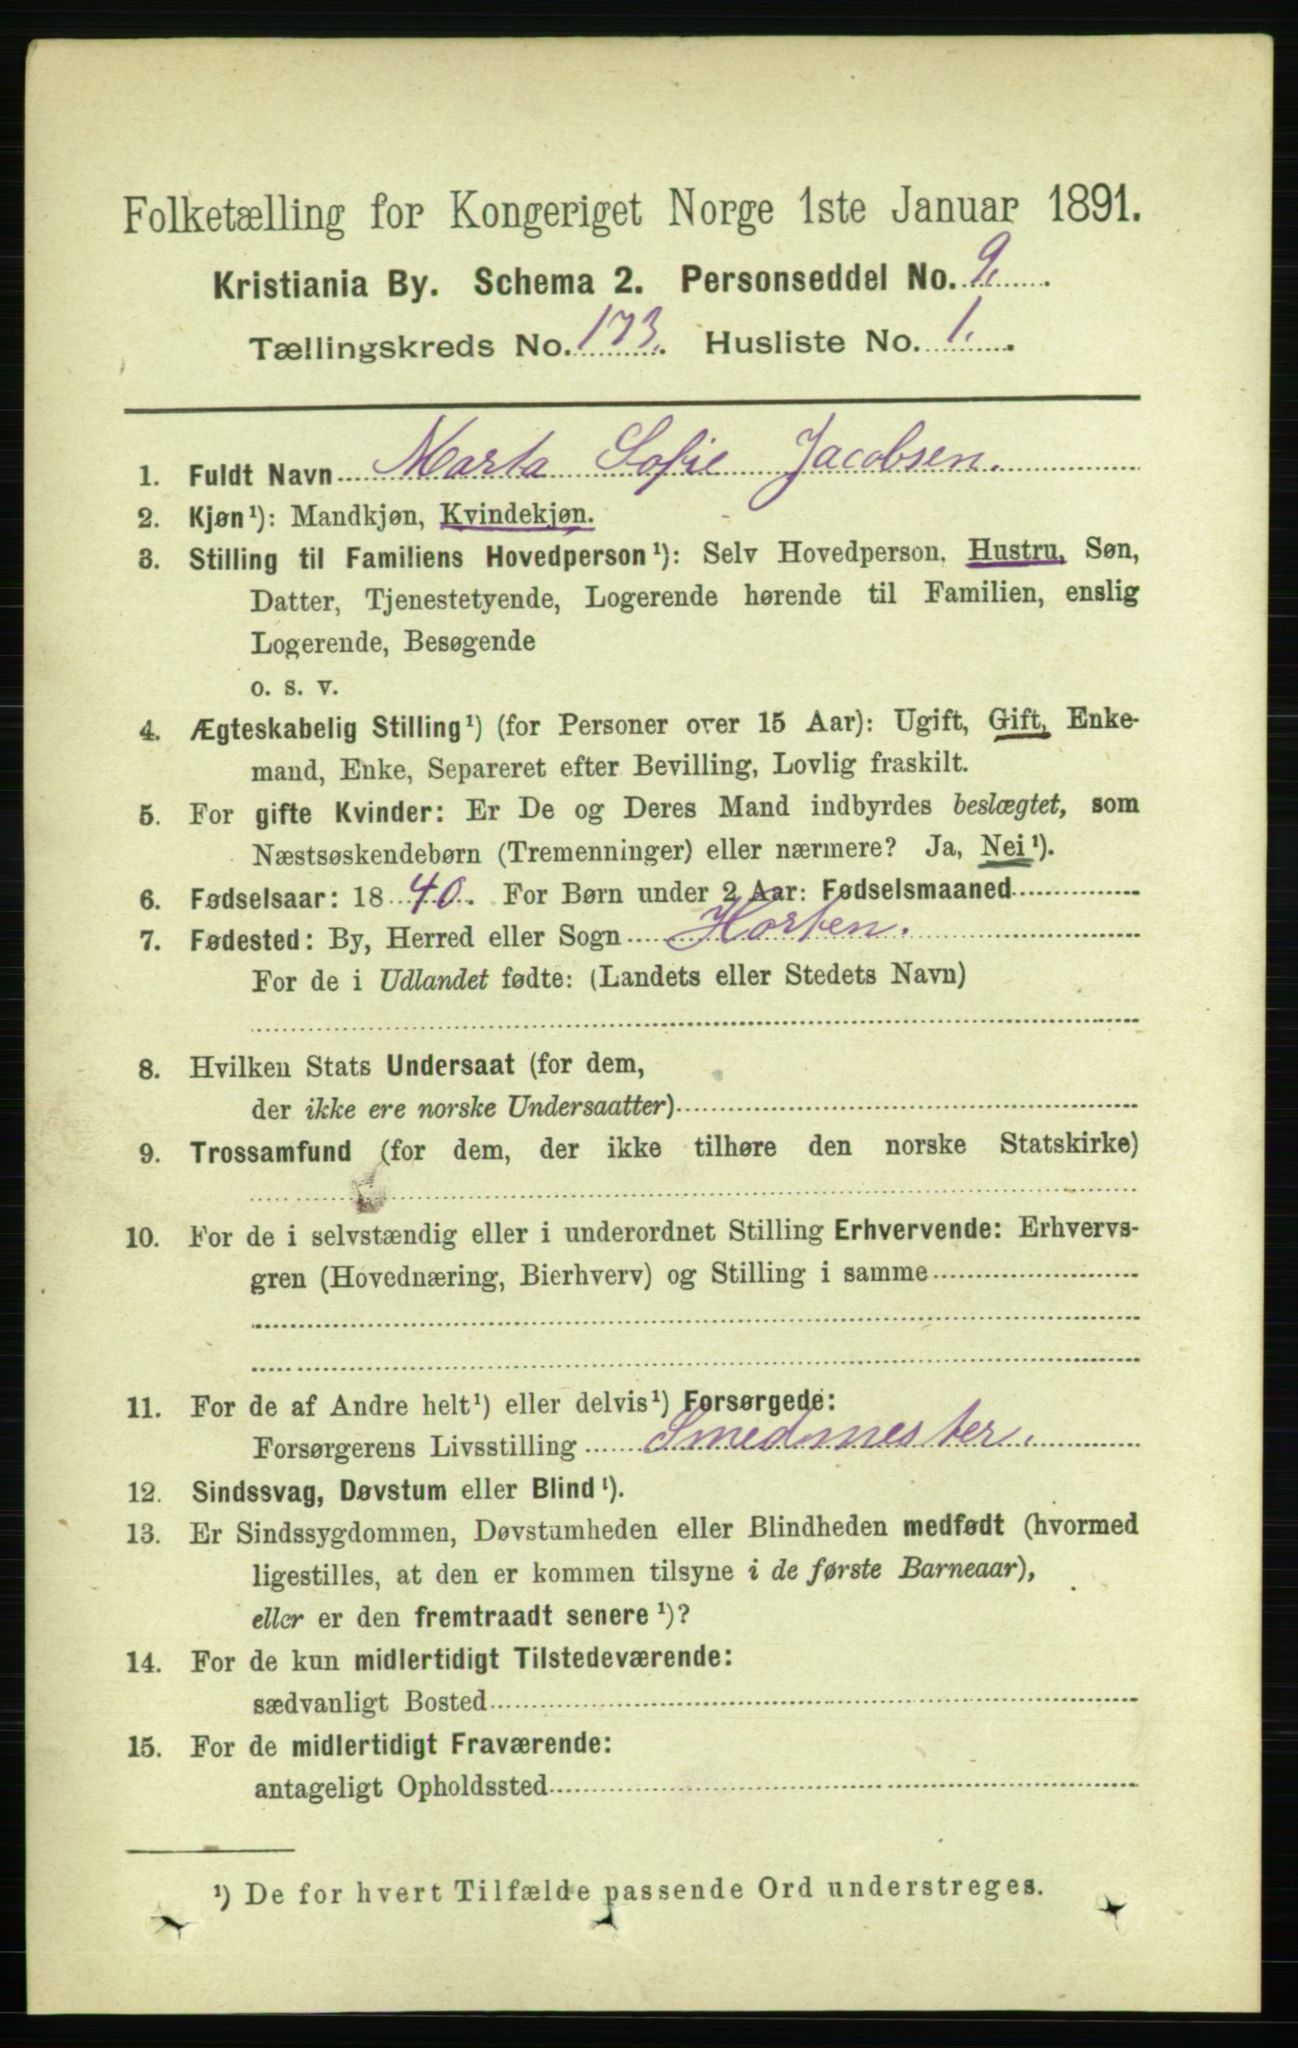 Folketælling for Kongeriget Norge 1ste Januar 1891.
Kristiania By. Schema 2. Personseddel No. 9.
Tællingskreds No. 173. Husliste No. 1.
1. Fuldt Navn Marta Sofie Jacobsen.
2. Kjøn¹): Mandkjøn, Kvindekjøn.
3. Stilling til Familiens Hovedperson¹): Selv Hovedperson, Hustru, Søn,
Datter, Tjenestetyende, Logerende hørende til Familien, enslig
Logerende, Besøgende
o. s. v.
4. Ægteskabelig Stilling¹) (for Personer over 15 Aar): Ugift, Gift, Enke-
mand, Enke, Separeret efter Bevilling, Lovlig fraskilt.
5. For gifte Kvinder: Er De og Deres Mand indbyrdes beslægtet, som
Næstsøskendebørn (Tremenninger) eller nærmere? Ja, Nei¹).
6. Fødselsaar: 1840. For Børn under 2 Aar: Fødselsmaaned
7. Fødested: By, Herred eller Sogn Horten.
For de i Udlandet fødte: (Landets eller Stedets Navn)
8. Hvilken Stats Undersaat (for dem,
der ikke ere norske Undersaatter)
9. Trossamfund (for dem, der ikke tilhøre den norske Statskirke)
10. For de i selvstændig eller i underordnet Stilling Erhvervende: Erhvervs-
gren (Hovednæring, Bierhverv) og Stilling i samme
11. For de af Andre helt¹) eller delvis¹) Forsørgede:
Forsørgerens Livsstilling Smedmester.
12. Sindssvag, Døvstum eller Blind¹).
13. Er Sindssygdommen, Døvstumheden eller Blindheden medfødt (hvormed
ligestilles, at den er kommen tilsyne i de første Barneaar),
eller er den fremtraadt senere¹)?
14. For de kun midlertidigt Tilstedeværende:
sædvanligt Bosted
15. For de midlertidigt Fraværende:
antageligt Opholdssted
¹) De for hvert Tilfælde passende Ord understreges.